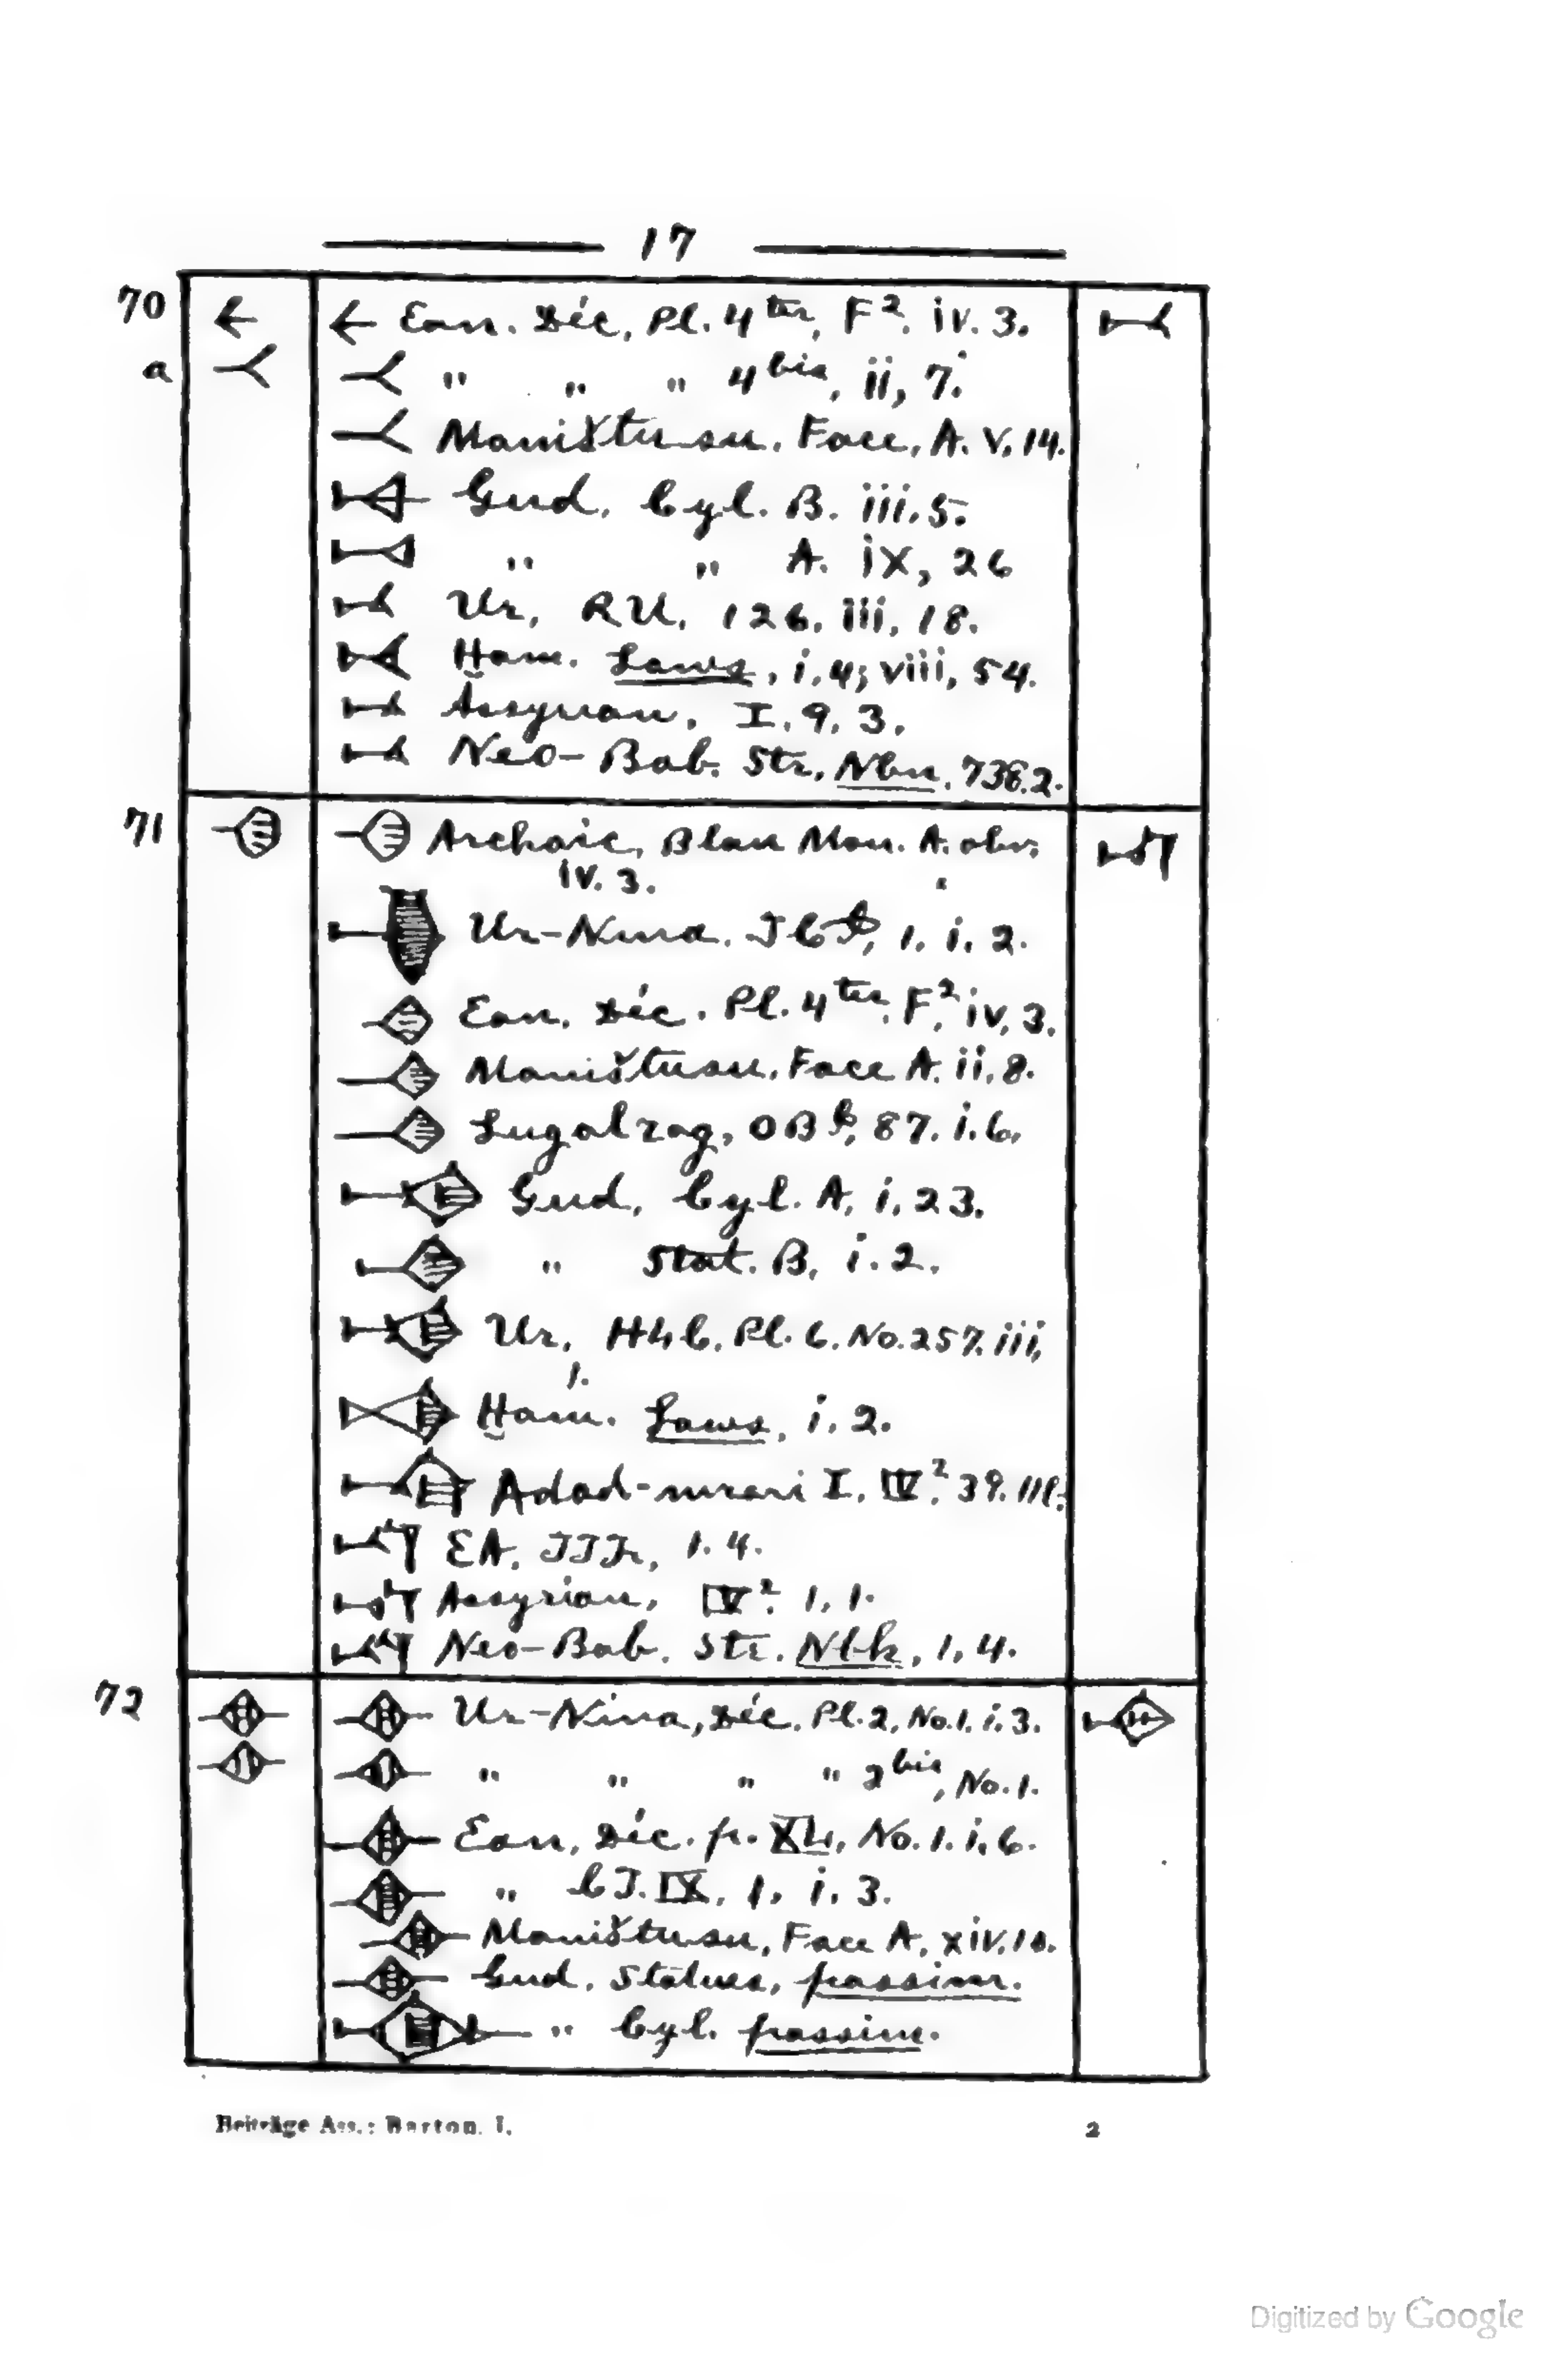 17
70 Ean. Déc, Pl. 4ter, F2. iv. 3.
a " " " 4bis, ii, 7.
Maništusu. Face, A. v, 14.
Gud. Cyl. B. iii. 5.
" " A. ix, 26
Ur, RU, 126. iii, 18.
Ḫam. Laws, i, 4; viii, 54.
Assyrian, I. 9, 3.
Neo-Bab. Str, Nbn, 738.2.
71 Archaic, Blau Mon. A. obv,
iv. 3.
Ur-Nina. 1, i, 2.
Ean. Déc. Pl. 4ter, F2, iv, 3.
Maništusu, Face A. ii, 8.
Lugalzag, 87. i. 6.
Gud, Cyl. A, i, 23.
" Stat. B, i. 2.
Ur, HLC, Pl. 6. No. 257. iii,
1.
Ḫam. Laws, i. 2.
Adad-nirari I. IV2. 39.
EA, 1. 4.
Assyrian, IV2. 1, 1.
Neo-Bab. Str. Nbk, 1, 4.
72 Ur-Nina, Déc. Pl. 2, No. 1. i. 3.
" " " " 2bis, No. 1.
Ean, Déc. p. XL, No. 1. i, 6.
" CT. IX, 1, i, 3.
Maništusu, Face A, xiv, 10.
Gud. Statues, passim.
" Cyl. passim.
Beiträge Ass.: Barton. I. 2
Digitized by Google